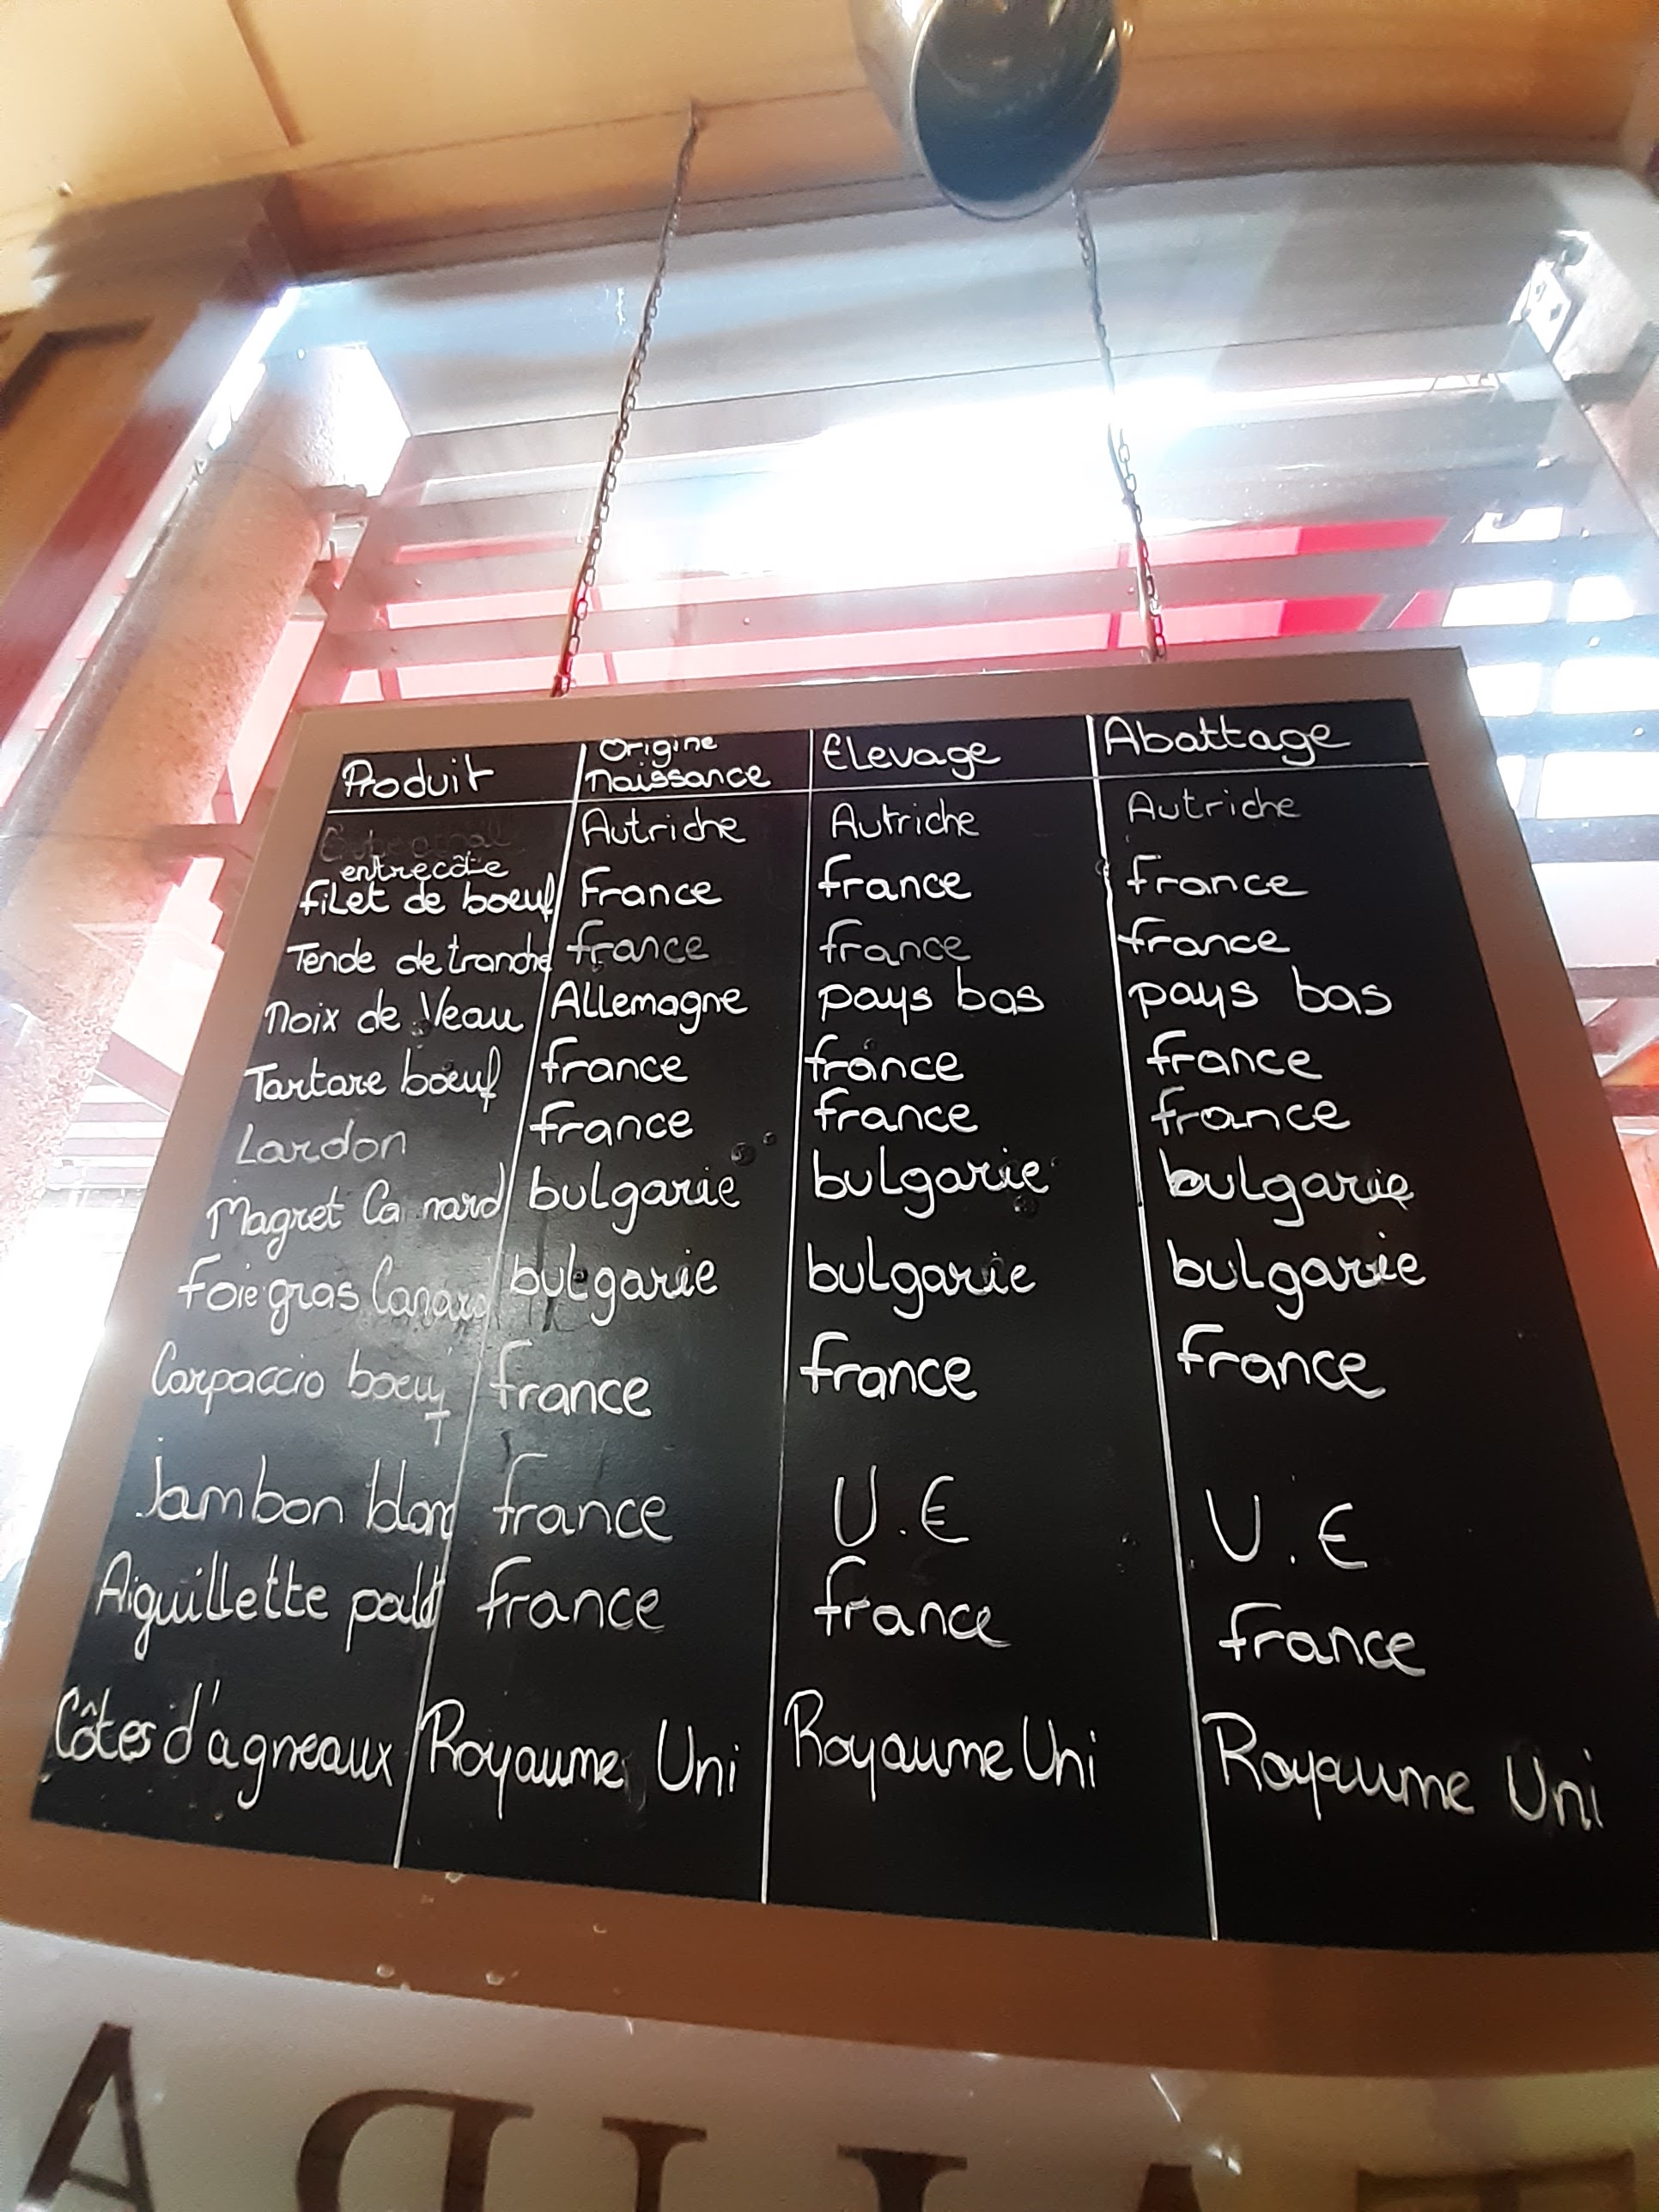 Produit Origine Naissance Elevage Abattage
entrecôte Autriche Autriche Autriche
filet de boeuf France france france
Tende de tranche france france france
Noix de Veau Allemagne pays bas pays bas
Tartare boeuf france france france
Lardon france france france
Magret Canard bulgarie bulgarie bulgarie
foie gras Canard bulgarie bulgarie bulgarie
Carpaccio boeuf france france france
Jambon blanc france U.E U.E
Aiguillette poult france france france
Côtes d'agneaux Royaume Uni Royaume Uni Royaume Uni